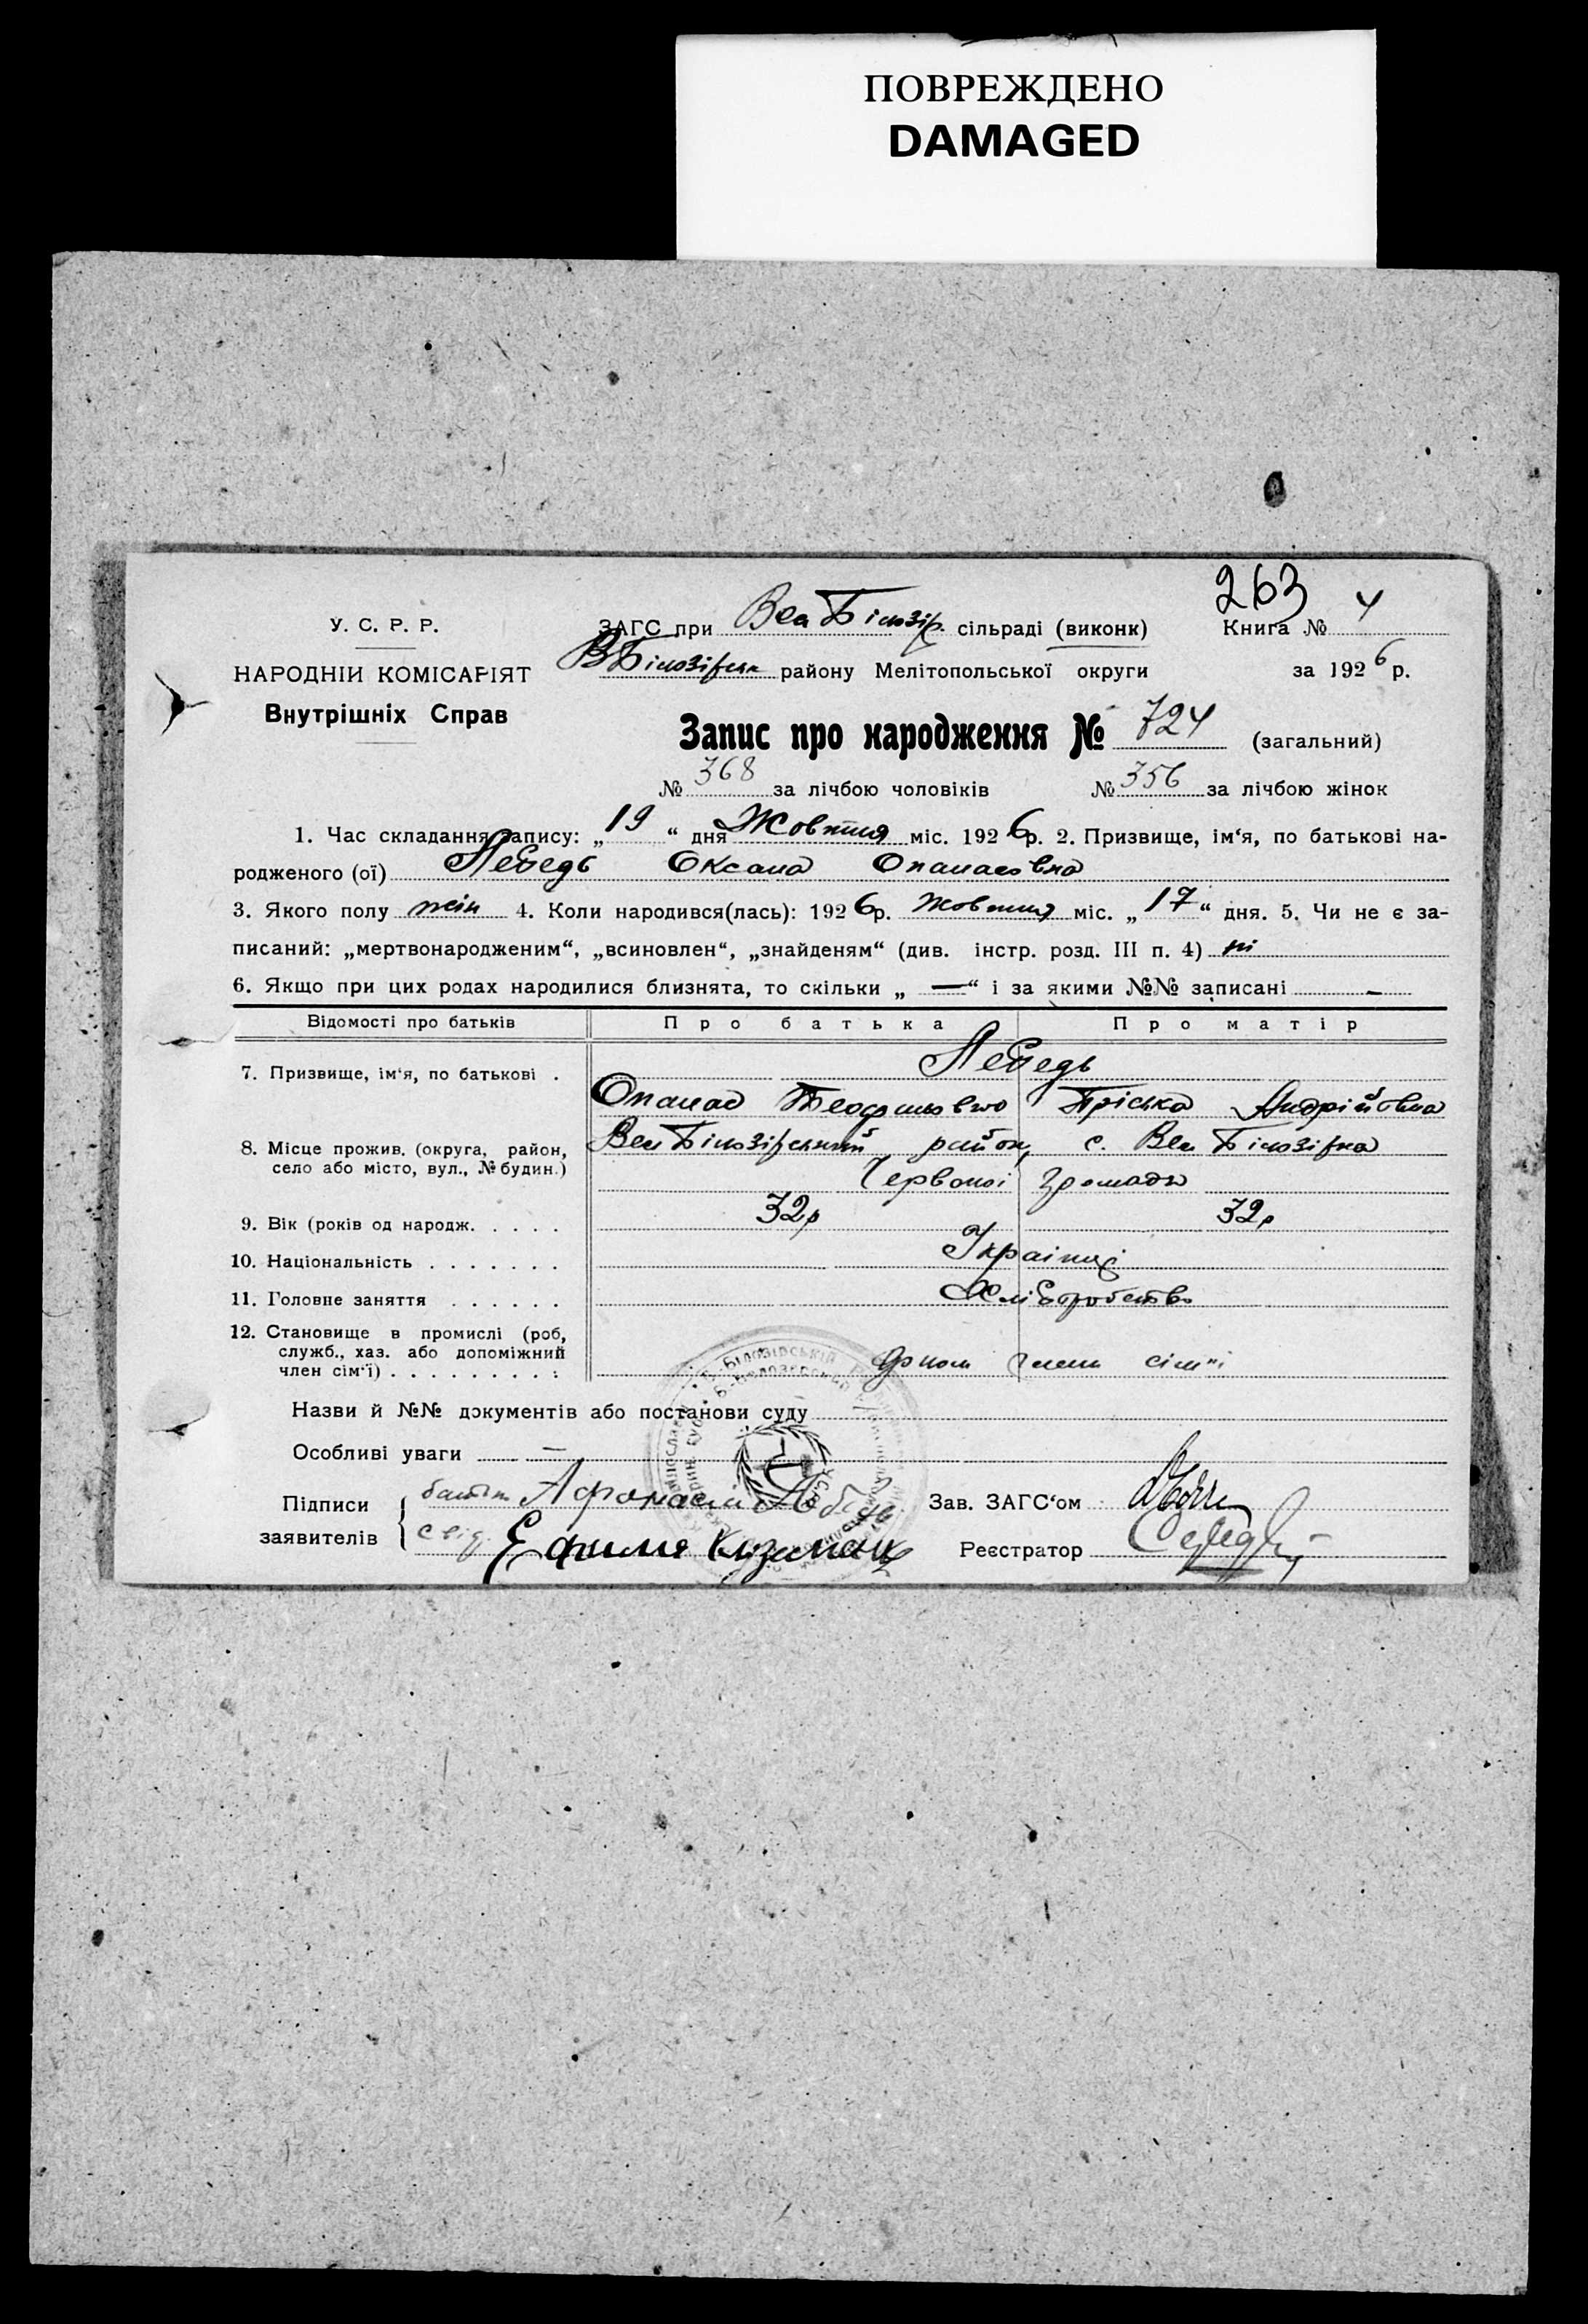 ПОВРЕЖДЕНО
DAMAGED
263
У. С. Р. Р.
ЗАГС при Вел Білозір. сільраді (виконк)
Книга № 4
НАРОДНІЙ КОМІСАРІЯТ
ВБілозірськ району Мелітопольської округи
за 1926 р.
Внутрішніх Справ
Запис про народження № 724 (загальний)
№ 368 за лічбою чоловіків № 356 за лічбою жінок
1. Час складання запису: „19“ дня Жовтня міс. 1926 р. 2. Призвище, ім‘я, по батькові на-
родженого (ої) Лебедь Оксана Опанасовна
3. Якого полу жін 4. Коли народився(лась): 1926 р. Жовтня міс. „17“ дня. 5. Чи не є за-
писаний: „мертвонародженим“, „всиновлен“, „знайденям“ (див. інстр. розд. III п. 4) ні
6. Якщо при цих родах народилися близнята, то скільки „ — “ і за якими №№ записані –
Відомості про батьків Про батька Про матір
7. Призвище, ім‘я, по батькові .
Лебедь
Опанас Пріська Андрійовна
8. Місце прожив. (округа, район,
село або місто, вул., № будин.)
Вел Білозірський район, с. Вел Білозірка
Червоної громади
9. Вік (років од народж. . . . . 32р 32р
10. Національність . . . . . . . Українці
11. Головне заняття . . . . . . Хліборобство
12. Становище в промислі (роб,
служб., хаз. або допоміжний
член сім‘ї) . . . . . . . . : член сім"ї
Назви й №№ документів або постанови суду
Особливі уваги –
Підписи
заявителів
батьк Афанасий Лебедь
свід. Ефимия
Зав. ЗАГС‘ом
Реєстратор